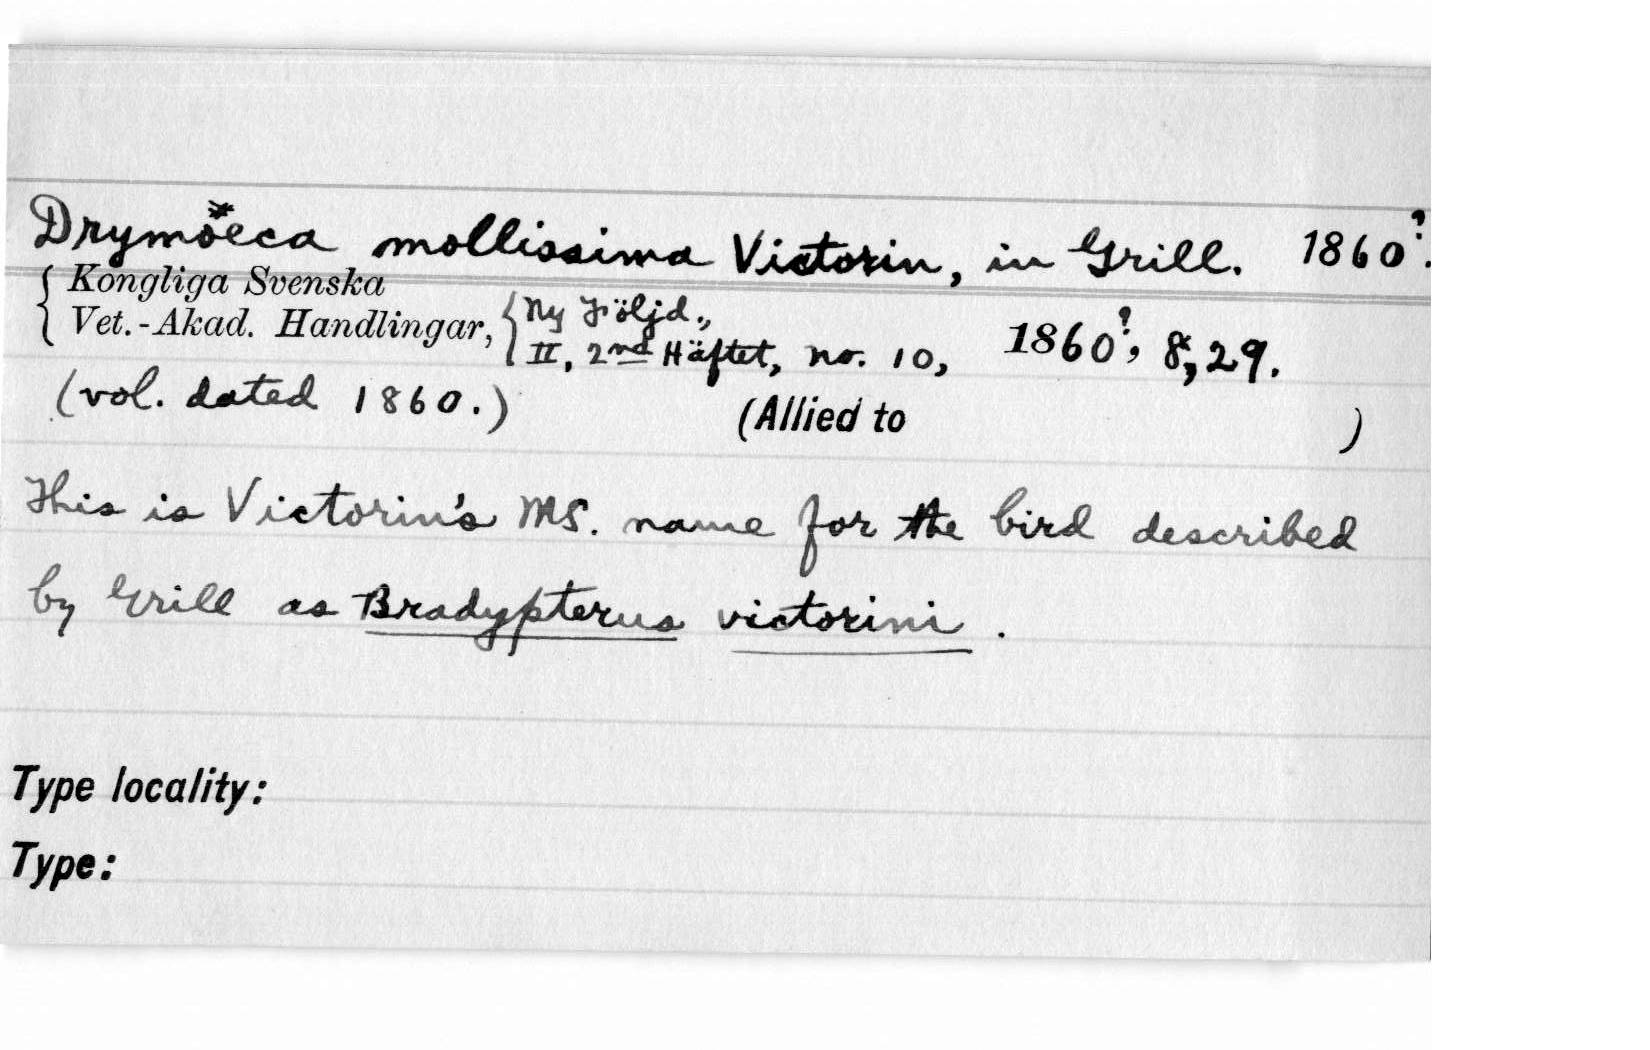 Drymöeca mollissima Victorin, in Grill. 1860?.
Kongliga Svenska
Vet.-Akad. Handlingar, Ny Följd.,
II, 2nd Häftet, no. 10, 1860?, 8, 29.
(vol. dated 1860.) (Allied to )
This is Victorin's MS. name for the bird described
by Grill as Bradypterus victorini.
Type locality:
Type: